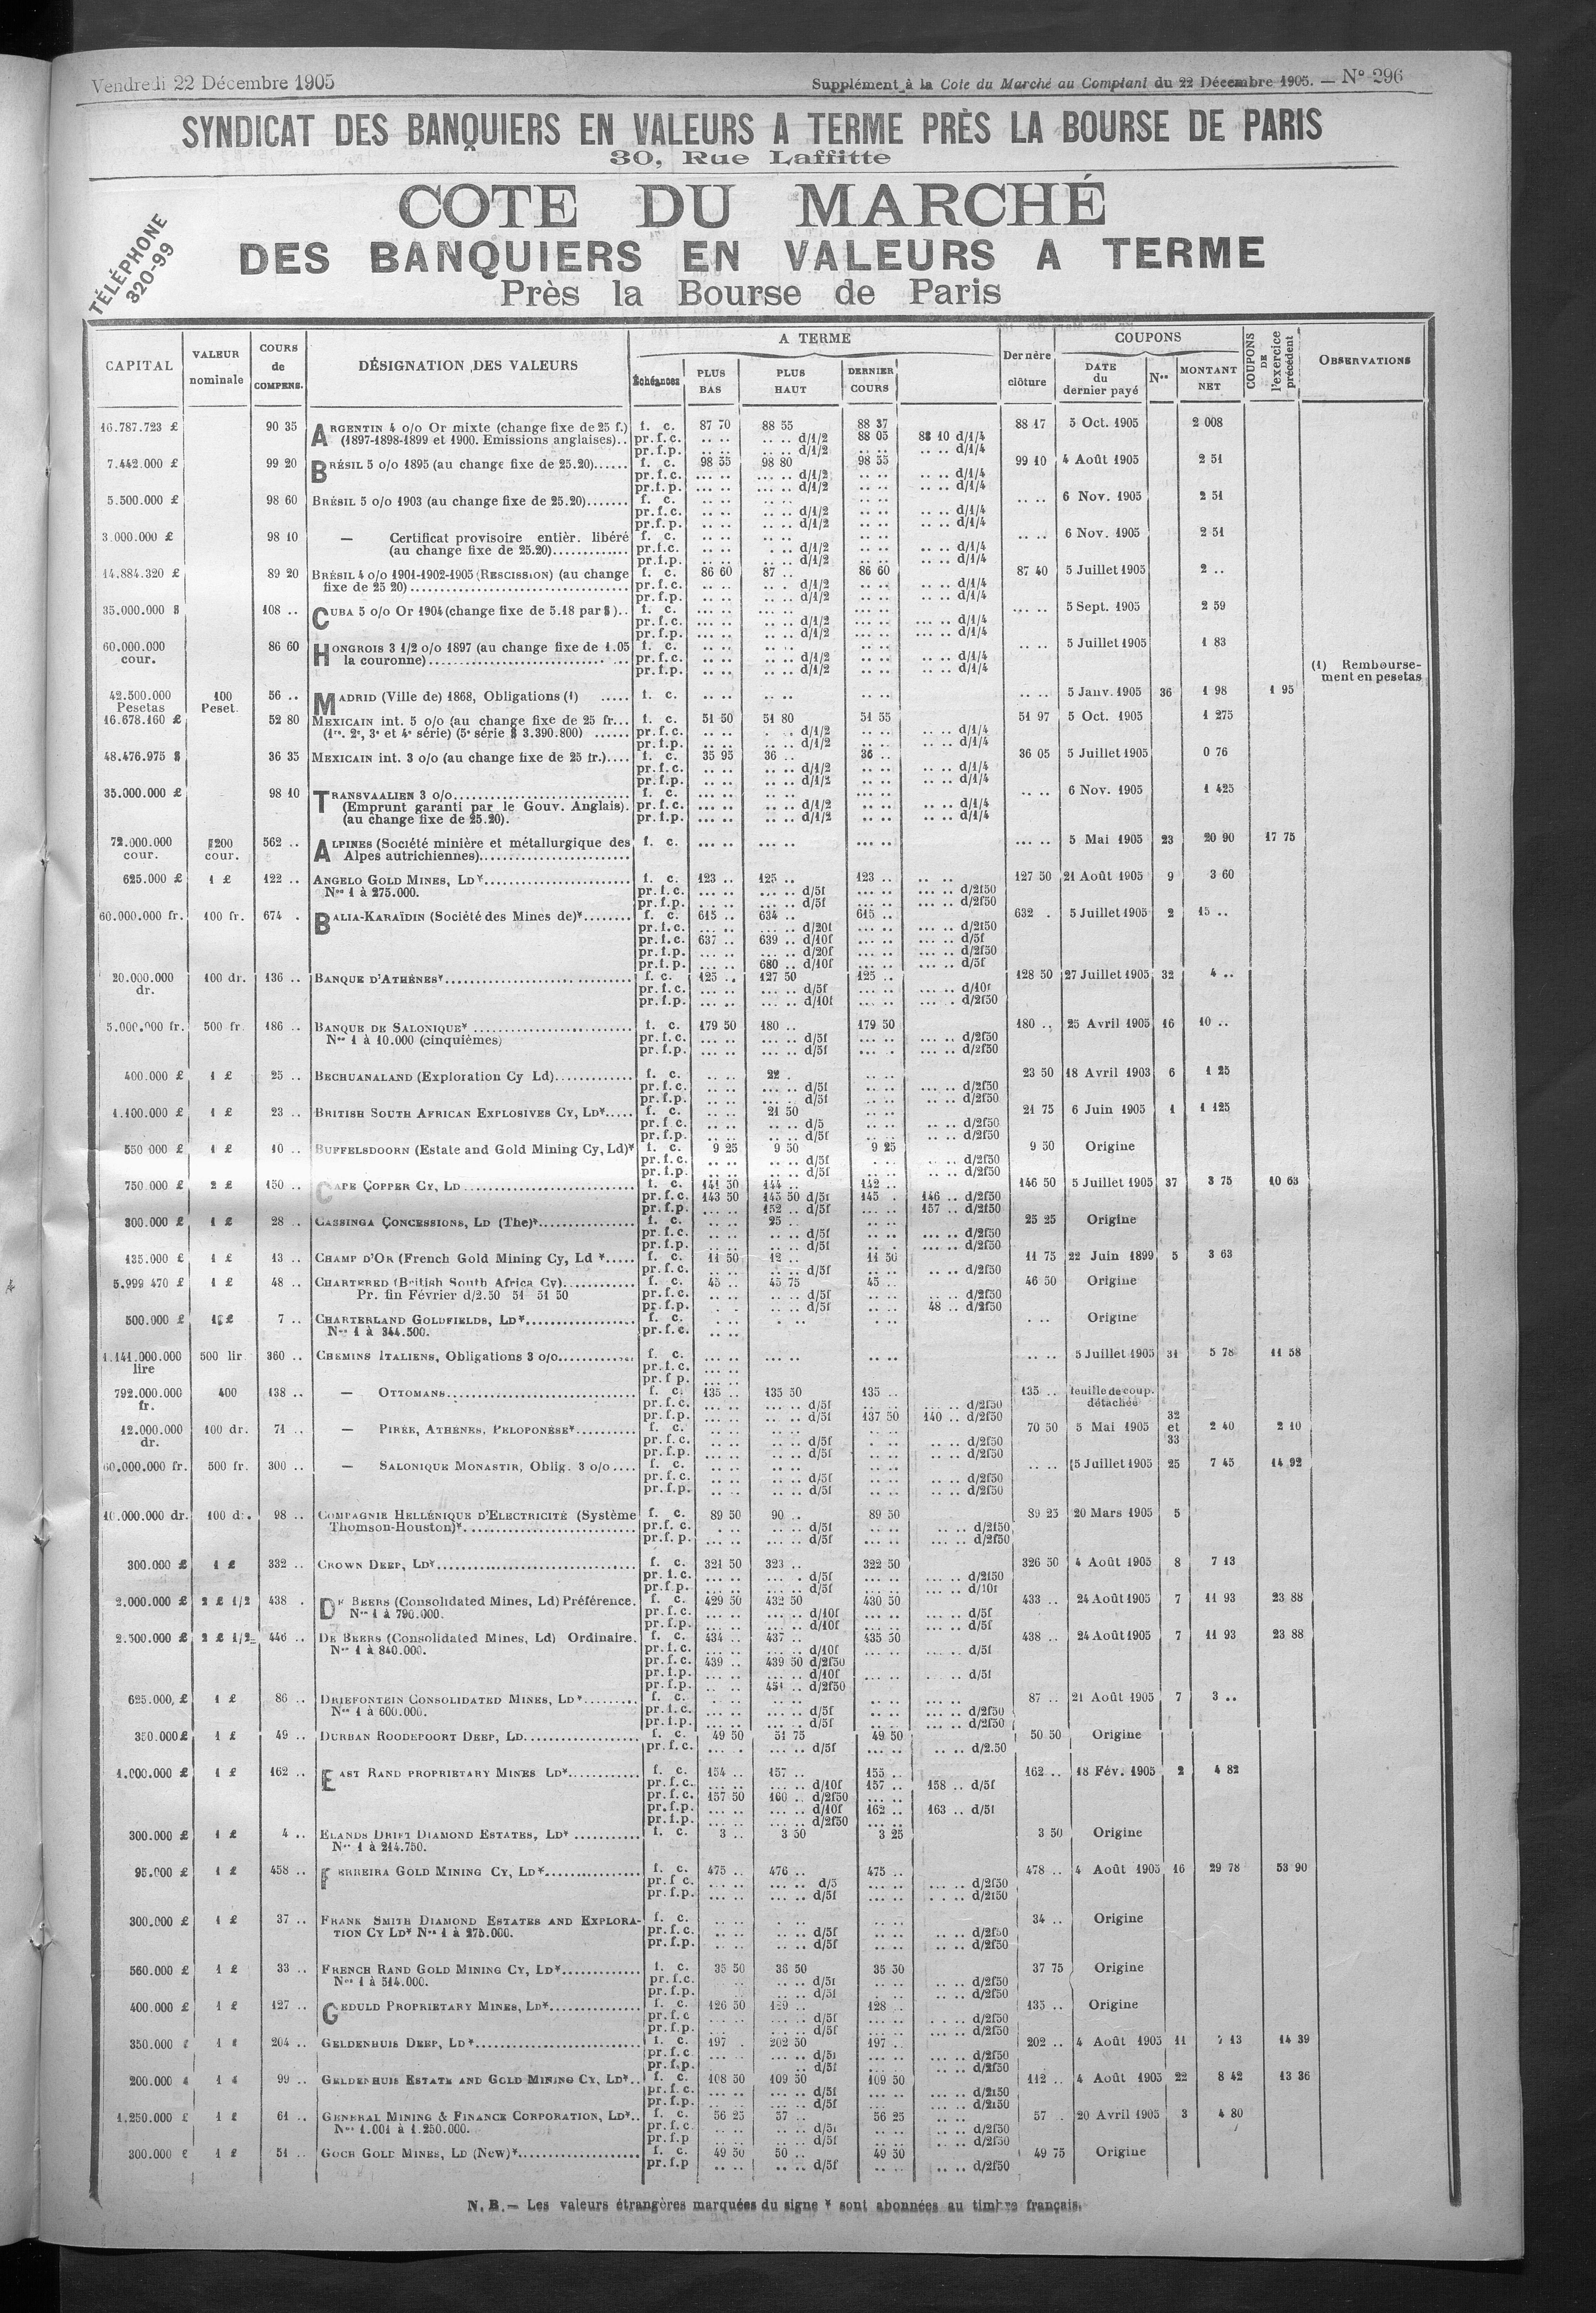 Vendredi 22 Décembre 1905 Supplément à la Cote du Marché au Comptant du 22 Décembre 1905. — N° 296
SYNDICAT DES BANQUIERS EN VALEURS A TERME PRÈS LA BOURSE DE PARIS
30, Rue Laffitte
TÉLÉPHONE
320-99
COTE DU MARCHÉ
DES BANQUIERS EN VALEURS A TERME
Près la Bourse de Paris
CAPITAL VALEUR nominale COURS de COMPENS. DÉSIGNATION DES VALEURS A TERME Échéances PLUS BAS PLUS HAUT DERNIER COURS Dernère clôture COUPONS DATE du dernier payé Nos MONTANT NET COUPONS DE l'exercice précédent OBSERVATIONS
16.787.723 £ 90 35 ARGENTIN 4 o/o Or mixte (change fixe de 25 f.) f. c. 87 70 88 55 88 37 88 17 5 Oct. 1905 2 008
(1897-1898-1899 et 1900. Emissions anglaises).. pr.f.c. .. .. .. .. d/1/2 88 05 88 10 d/1/4
pr.f.p. .. .. .. .. d/1/2 .. .. .. .. d/1/4
7.442.000 £ 99 20 BRÉSIL 5 o/o 1895 (au change fixe de 25.20)...... f. c. 98 55 98 80 98 55 99 10 4 Août 1905 2 51
pr.f.c. ... .. ... .. d/1/2 ... .. ... .. d/1/4
pr.f.p. ... .. ... .. d/1/2 ... .. ... .. d/1/4
5.500.000 £ 98 60 BRÉSIL 5 o/o 1903 (au change fixe de 25.20)....... f. c. .. .. .. .. .. .. .. .. 6 Nov. 1905 2 51
pr.f.c. .. .. .. .. d/1/2 .. .. .. .. d/1/4
pr.f.p. .. .. .. .. d/1/2 .. .. .. .. d/1/4
3.000.000 £ 98 10 — Certificat provisoire entièr. libéré f. c. .. .. .. .. .. .. .. .. 6 Nov. 1905 2 51
(au change fixe de 25.20)............. pr.f.c. .. .. . .. d/1/2 .. .. .. .. d/1/4
pr.f.p. .. .. .. .. d/1/2 .. .. .. .. d/1/4
14.884.320 £ 89 20 BRÉSIL 4 o/o 1901-1902-1905 (RESCISSION) (au change f. c. 86 60 87 .. 86 60 87 40 5 Juillet 1905 2 ..
fixe de 25 20).................................. pr.f.c. .. .. .. . d/1/2 .. .. .. .. d/1/4
pr.f.p. .. .. .. .. d/1/2 .. .. .. .. d/1/4
35.000.000 $ 108 .. CUBA 5 o/o Or 1904 (change fixe de 5.18 par $).. f. c. ... .. ... .. ... .. ... .. 5 Sept. 1905 2 59
pr.f.c. ... .. .. .. d/1/2 ... .. ... .. d/1/4
pr.f.p. ... .. .. .. d/1/2 ... .. ... .. d/1/4
60.000.000 86 60 HONGROIS 3 1/2 o/o 1897 (au change fixe de 1.05 f. c. .. .. .. .. .. .. .. .. 5 Juillet 1905 1 83
cour. la couronne)............................... pr.f.c. .. .. .. .. d/1/2 .. .. .. .. d/1/4
pr.f.p. .. .. .. .. d/1/2 .. .. .. .. d/1/4 (1) Rembourse-
ment en pesetas
42.500.000 100 56 .. MADRID (Ville de) 1868, Obligations (1) ..... f. c. .. .. .. .. .. .. .. .. 5 Janv. 1905 36 1 98 1 95
Pesetas Peset.
16.678.160 £ 52 80 MEXICAIN int. 5 o/o (au change fixe de 25 fr... f. c. 51 50 51 80 51 55 51 97 5 Oct. 1905 1 275
(1re, 2e, 3e et 4e série) (5e série $ 3.390.800) ...... pr.f.c. .. .. . .. d/1/2 .. .. .. .. d/1/4
pr.f.p. .. .. .. .. d/1/2 .. .. .. .. d/1/4
48.476.975 $ 36 35 MEXICAIN int. 3 o/o (au change fixe de 25 fr.).... f. c. 35 95 36 .. 36 .. 36 05 5 Juillet 1905 0 76
pr.f.c. .. .. .. .. d/1/2 .. .. .. .. d/1/4
pr.f.p. .. .. .. .. d/1/2 .. .. .. .. d/1/4
35.000.000 £ 98 10 TRANSVAALIEN 3 o/o........................... f. c. ... .. .. .. ... .. .. .. 6 Nov. 1905 1 425
(Emprunt garanti par le Gouv. Anglais). pr.f.c. ... .. ... .. d/1/2 .. .. .. .. d/1/4
(au change fixe de 25.20). pr.f.p. ... .. ... .. d/1/2 .. .. .. .. d/1/4
72.000.000 200 562 .. ALPINES (Société minière et métallurgique des f. c. ... .. ... .. ... .. ... .. 5 Mai 1905 23 20 90 17 75
cour. cour. Alpes autrichiennes).......................
625.000 £ 1 £ 122 .. ANGELO GOLD MINES, LD*....................... f. c. 123 .. 125 .. 123 .. .. .. 127 50 21 Août 1905 9 3 60
Nos 1 à 275.000. pr.f.c. ... .. ... .. d/5f ... .. ... .. d/2f50
pr.f.p. ... .. ... .. d/5f ... .. ... .. d/2f50
60.000.000 fr. 100 fr. 674 . BALIA-KARAÏDIN (Société des Mines de)*........ f. c. 615 .. 634 .. 615 .. 632 . 5 Juillet 1905 2 15 ..
pr.f.c. ... .. ... .. d/20f ... .. ... .. d/2f50
pr.f.c. 637 .. 639 .. d/10f ... .. ... .. d/5f
pr.f.p. ... .. ... .. d/20f ... .. ... .. d/2f50
pr.f.p. ... .. 680 .. d/10f ... .. ... .. d/5f
20.000.000 100 dr. 136 .. BANQUE D'ATHÈNES*............................ f. c. 125 .. 127 50 125 .. 128 50 27 Juillet 1905 32 4 ..
dr. pr.f.c. ... .. ... .. d/5f ... .. ... .. d/10f
pr.f.p. ... .. ... .. d/10f ... .. ... . d/2f50
5.000.000 fr. 500 fr. 186 .. BANQUE DE SALONIQUE* ........................ f. c. 179 50 180 .. 179 50 180 .. 25 Avril 1905 16 10 ..
Nos 1 à 10.000 (cinquièmes) pr.f.c. ... .. ... .. d/5f ... .. ... .. d/2f50
pr.f.p. ... .. ... .. d/5f ... . ... .. d/2f50
400.000 £ 1 £ 25 .. BECHUANALAND (Exploration Cy Ld)............ f. c. .. .. 22 . .. .. 23 50 18 Avril 1903 6 1 25
pr.f.c. .. .. ... .. d/5f .. .. ... .. d/2f50
pr.f.p. .. .. ... .. d/5f .. .. ... .. d/2f50
1.100.000 £ 1 £ 23 .. BRITISH SOUTH AFRICAN EXPLOSIVES CY, LD*..... f. c. .. .. 21 50 .. .. 21 75 6 Juin 1905 1 1 125
pr.f c. .. .. .. .. d/5 .. .. .. .. d/2f50
pr.f.p. .. .. .. .. d/5f .. .. .. .. d/2f50
550 000 £ 1 £ 10 .. BUFFELSDOORN (Estate and Gold Mining Cy, Ld)* f. c. 9 25 9 50 9 25 9 50 Origine
pr.f.c. .. .. .. .. d/5f . .. .. .. d/2f50
pr.f.p. .. .. .. .. d/5f .. .. .. .. d/2f50
750.000 £ 2 £ 150 .. CAPE COPPER CY, LD .......................... f. c. 141 50 144 .. 142 .. 146 50 5 Juillet 1905 37 3 75 10 63
pr.f.c. 143 50 145 50 d/5f 145 . 146 .. d/2f50
pr.f.p. ... .. 152 .. d/5f ... .. 157 .. d/2f50
300.000 £ 1 £ 28 .. CASSINGA CONCESSIONS, LD (The)*.............. f. c. .. .. 25 .. .. .. 25 25 Origine
pr.f.c. .. .. .. .. d/5f .. .. ... .. d/2f50
pr.f.p. .. .. .. .. d/5f .. . ... .. d/2f50
135.000 £ 1 £ 13 .. CHAMP D'OR (French Gold Mining Cy, Ld *..... f. c. 11 50 12 .. 11 50 11 75 22 Juin 1899 5 3 63
pr.f.c. .. .. .. .. d/5f .. .. .. .. d/2f50
5.999 470 £ 1 £ 48 .. CHARTERED (British South Africa Cy)........... f. c. 45 .. 45 75 45 .. 46 50 Origine
Pr. fin Février d/2.50 51 51 50 pr.f.c. .. .. .. .. d/5f .. .. .. .. d/2f50
pr.f.p. . . .. .. d/5f .. .. 48 .. d/2f50
500.000 £ 1 £ 7 .. CHARTERLAND GOLDFIELDS, LD*................. f. c. . .. . .. .. .. . .. Origine
Nos 1 à 344.500. pr.f.c. .. ..
1.141.000.000 500 lir 360 .. CHEMINS ITALIENS, Obligations 3 o/o........... f. c. ... .. ... .. .. .. .. .. 5 Juillet 1905 31 5 78 11 58
lire pr.f.c. ... ..
pr.f p. ... ..
792.000.000 400 138 .. — OTTOMANS............................ f. c. 135 .. 135 50 135 .. 135 .. feuille de coup.
fr. pr.f.c. ... .. ... .. d/5f ... .. ... .. d/2f50 détachée
pr.f.p. ... .. ... .. d/5f 137 50 140 .. d/2f50
12.000.000 100 dr. 71 .. — PIRÉE, ATHÈNES, PÉLOPONÈSE*.......... f. c. .. .. .. .. . .. 70 50 5 Mai 1905 32 et 33 2 40 2 10
dr. pr.f.c. .. .. .. .. d/5f . .. .. .. d/2f50
pr.f.p. .. .. .. .. d/5f .. .. .. .. d/2f50
60.000.000 fr. 500 fr. 300 .. — SALONIQUE MONASTIR, Oblig. 3 o/o.... f. c. .. .. .. .. .. .. .. .. 5 Juillet 1905 25 7 45 14 92
pr.f.c. .. .. .. .. d/5f .. .. .. .. d/2f50
pr.f.p. .. .. .. .. d/5f .. .. .. .. d/2f50
10.000.000 dr. 100 d.. 98 .. COMPAGNIE HELLÉNIQUE D'ELECTRICITÉ (Système f. c. 89 50 90 .. 89 50 89 25 20 Mars 1905 5
Thomson-Houston)*........................... pr.f.c. . .. .. .. d/5f .. .. .. .. d/2f50
pr.f.p. ... .. ... .. d/5f ... .. .. .. d/2f50
300.000 £ 1 £ 332 .. CROWN DEEP, LD*.............................. f. c. 321 50 323 .. 322 50 326 50 4 Août 1905 8 7 13
pr.f.c. ... .. ... . d/5f ... .. ... .. d/2f50
pr.f.p. ... .. ... .. d/5f ... .. ... .. d/10f
2.000.000 £ 2 £ 1/2 438 . DE BEERS (Consolidated Mines, Ld) Préférence. f. c. 429 50 432 50 430 50 433 .. 24 Août 1905 7 11 93 23 88
Nos 1 à 790.000. pr.f.c. ... .. ... .. d/10f ... .. ... .. d/5f
pr.f.p. ... .. ... .. d/10f ... .. ... .. d/5f
2.500.000 £ 2 £ 1/2 446 .. DE BEERS (Consolidated Mines, Ld) Ordinaire. f. c. 434 .. 437 .. 435 50 438 .. 24 Août 1905 7 11 93 23 88
Nos 1 à 840.000. pr.f.c. ... .. ... .. d/10f ... .. ... .. d/5f
pr.f.c. 439 .. 439 50 d/2f50
pr.f.p. ... .. ... .. d/10f ... .. . .. d/5f
pr.f.p. .. .. 451 .. d/2f50
625.000. £ 1 £ 86 .. DRIEFONTEIN CONSOLIDATED MINES, LD*......... f. c. .. .. .. .. .. .. ... .. 87 .. 21 Août 1905 7 3 ..
Nos 1 à 600.000. pr.f.c. ... .. ... .. d/5f ... .. ... .. d/2f50
pr.f.p. ... .. ... .. d/5f ... .. ... .. d/2f50
350.000 £ 1 £ 49 .. DURBAN ROODEPOORT DEEP, LD.................. f. c. 49 50 51 75 49 50 50 50 Origine
pr.f.c. ... . ... .. d/5f ... .. .. .. d/2.50
1.000.000 £ 1 £ 162 .. EAST RAND PROPRIETARY MINES LD*............ f. c. 154 .. 157 .. 155 .. 162 .. 18 Fév. 1905 2 4 82
pr.f.c. ... .. ... .. d/10f 157 .. 158 .. d/5f
pr.f.c. 157 50 160 .. d/2f50 ... ..
pr.f.p. ... .. ... .. d/10f 162 .. 163 .. d/5f
pr.f.p. ... .. ... .. d/2f50 ... ..
300.000 £ 1 £ 4 .. ELANDS DRIFT DIAMOND ESTATES, LD* ........... f. c. 3 .. 3 50 3 25 3 50 Origine
Nos 1 à 214.750.
95.000 £ 1 £ 458 .. FERREIRA GOLD MINING CY, LD*............... f. c. 475 .. 476 .. 475 .. 478 .. 4 Août 1905 16 29 78 53 90
pr.f c. ... .. ... .. d/5 ... .. ... .. d/2f50
pr.f.p. ... .. ... .. d/5f ... .. . .. d/2f50
300.000 £ 1 £ 37 .. FRANK SMITH DIAMOND ESTATES AND EXPLORA- f. c. .. .. . .. .. .. 34 .. Origine
TION CY LD* Nos 1 à 275.000. pr.f.c. .. .. .. .. d/5f .. .. .. .. d/2f50
pr.f.p. .. .. .. .. d/5f .. .. .. .. d/2f50
560.000 £ 1 £ 33 .. FRENCH RAND GOLD MINING CY, LD*............ f. c. 35 50 36 50 35 50 37 75 Origine
Nos 1 à 514.000. pr.f.c. .. .. .. d/5f .. .. .. .. d/2f50
pr.f.p. .. .. .. .. d/5f .. .. .. .. d/2f50
400.000 £ 1 £ 127 .. GEDULD PROPRIETARY MINES, LD*............... f. c. 126 50 129 .. 128 .. 135 .. Origine
pr.f.c ... .. .. .. d/5f ... .. .. .. d/2f50
pr.f.p ... .. .. d/5f ... .. .. .. d/2f50
350.000 £ 1 £ 204 .. GELDENHUIS DEEP, LD*......................... f. c. 197 . 202 50 197 .. 202 .. 4 Août 1905 11 7 13 14 39
pr.f.c ... .. ... .. d/5f ... .. ... .. d/2f50
pr.f.p. ... .. .. d/5f ... .. ... .. d/2f50
200.000 £ 1 £ 99 .. GELDENHUIS ESTATE AND GOLD MINING CY, LD*.. f. c. 108 50 109 50 109 50 112 .. 4 Août 1905 22 8 42 13 36
pr.f.c. ... .. ... .. d/5f ... .. ... .. d/2f50
pr.f.p. ... .. ... .. d/5f ... .. ... .. d/2f50
1.250.000 £ 1 £ 61 .. GENERAL MINING & FINANCE CORPORATION, LD*.. f. c. 56 25 57 .. 56 25 .. .. 57 . 20 Avril 1905 3 4 80
Nos 1.001 à 1.250.000. pr.f.c .. .. .. .. d/5f .. .. .. .. d/2f50
pr.f.p .. .. .. .. d/5f .. .. .. .. d/2f50
300.000 £ 1 £ 51 .. GOCH GOLD MINES, LD (New)*................... f. c. 49 50 50 .. 49 50 49 75 Origine
pr.f.p .. .. .. .. d/5f .. .. .. .. d/2f50
N. B. — Les valeurs étrangères marquées du signe * sont abonnées au timbre français.